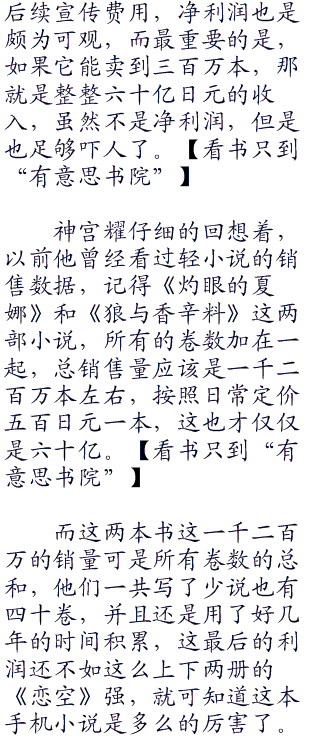 后续宣传费用，净利润也是
颇为可观，而最重要的是，
如果它能卖到三百万本，那
就是整整六十亿日元的收
入，虽然不是净利润，但是
也足够吓人了。【看书只到
“有意思书院”】
神宫耀仔细的回想着，
以前他曾经看过轻小说的销
售数据，记得《灼眼的夏
娜》和《狼与香辛料》这两
部小说，所有的卷数加在一
起，总销售量应该是一千二
百万本左右，按照日常定价
五百日元一本，这也才仅仅
是六十亿。【看书只到“有
意思书院”】
而这两本书这一千二百
万的销量可是所有卷数的总
和，他们一共写了少说也有
四十卷，并且还是用了好几
年的时间积累，这最后的利
润还不如这么上下两册的
《恋空》强，就可知道这本
手机小说是多么的厉害了。